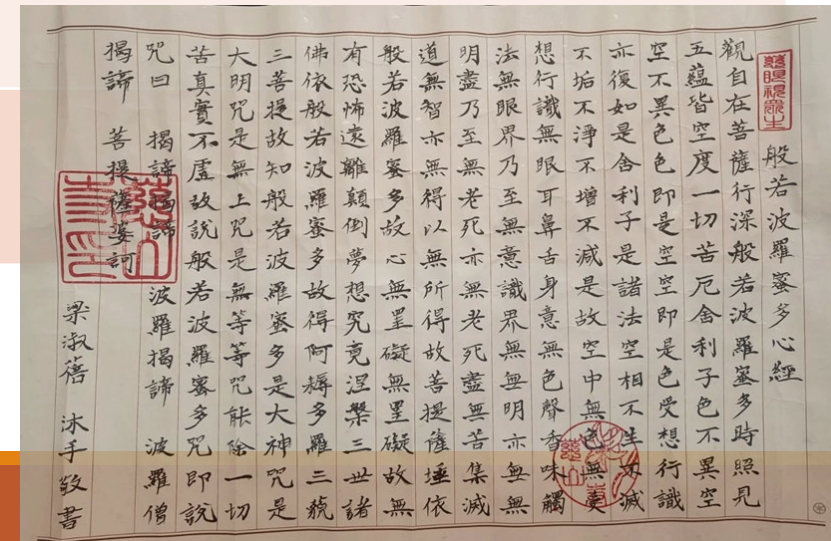 慈眼視眾生
般若波羅蜜多心經
觀自在菩薩行深般若波羅蜜多時照見
五蘊皆空度一切苦厄舍利子色不異空
空不異色色即是空空即是色受想行識
亦復如是舍利子是諸法空相不生不滅
不垢不淨不增不減是故空中無色無受
想行識無眼耳鼻舌身意無色聲香味觸
法無眼界乃至無意識界無無明亦無無
明盡乃至無老死亦無老死盡無苦集滅
道無智亦無得以無所得故菩提薩埵依
般若波羅蜜多故心無罣礙無罣礙故無
有恐怖遠離顛倒夢想究竟涅槃三世諸
佛依般若波羅蜜多故得阿耨多羅三藐
三菩提故知般若波羅蜜多是大神咒是
大明咒是無上咒是無等等咒能除一切
苦真實不虛故說般若波羅蜜多咒即說
咒曰 揭諦揭諦 波羅揭諦 波羅僧
揭諦 菩提薩婆訶
梁淑蓓 沐手敬書